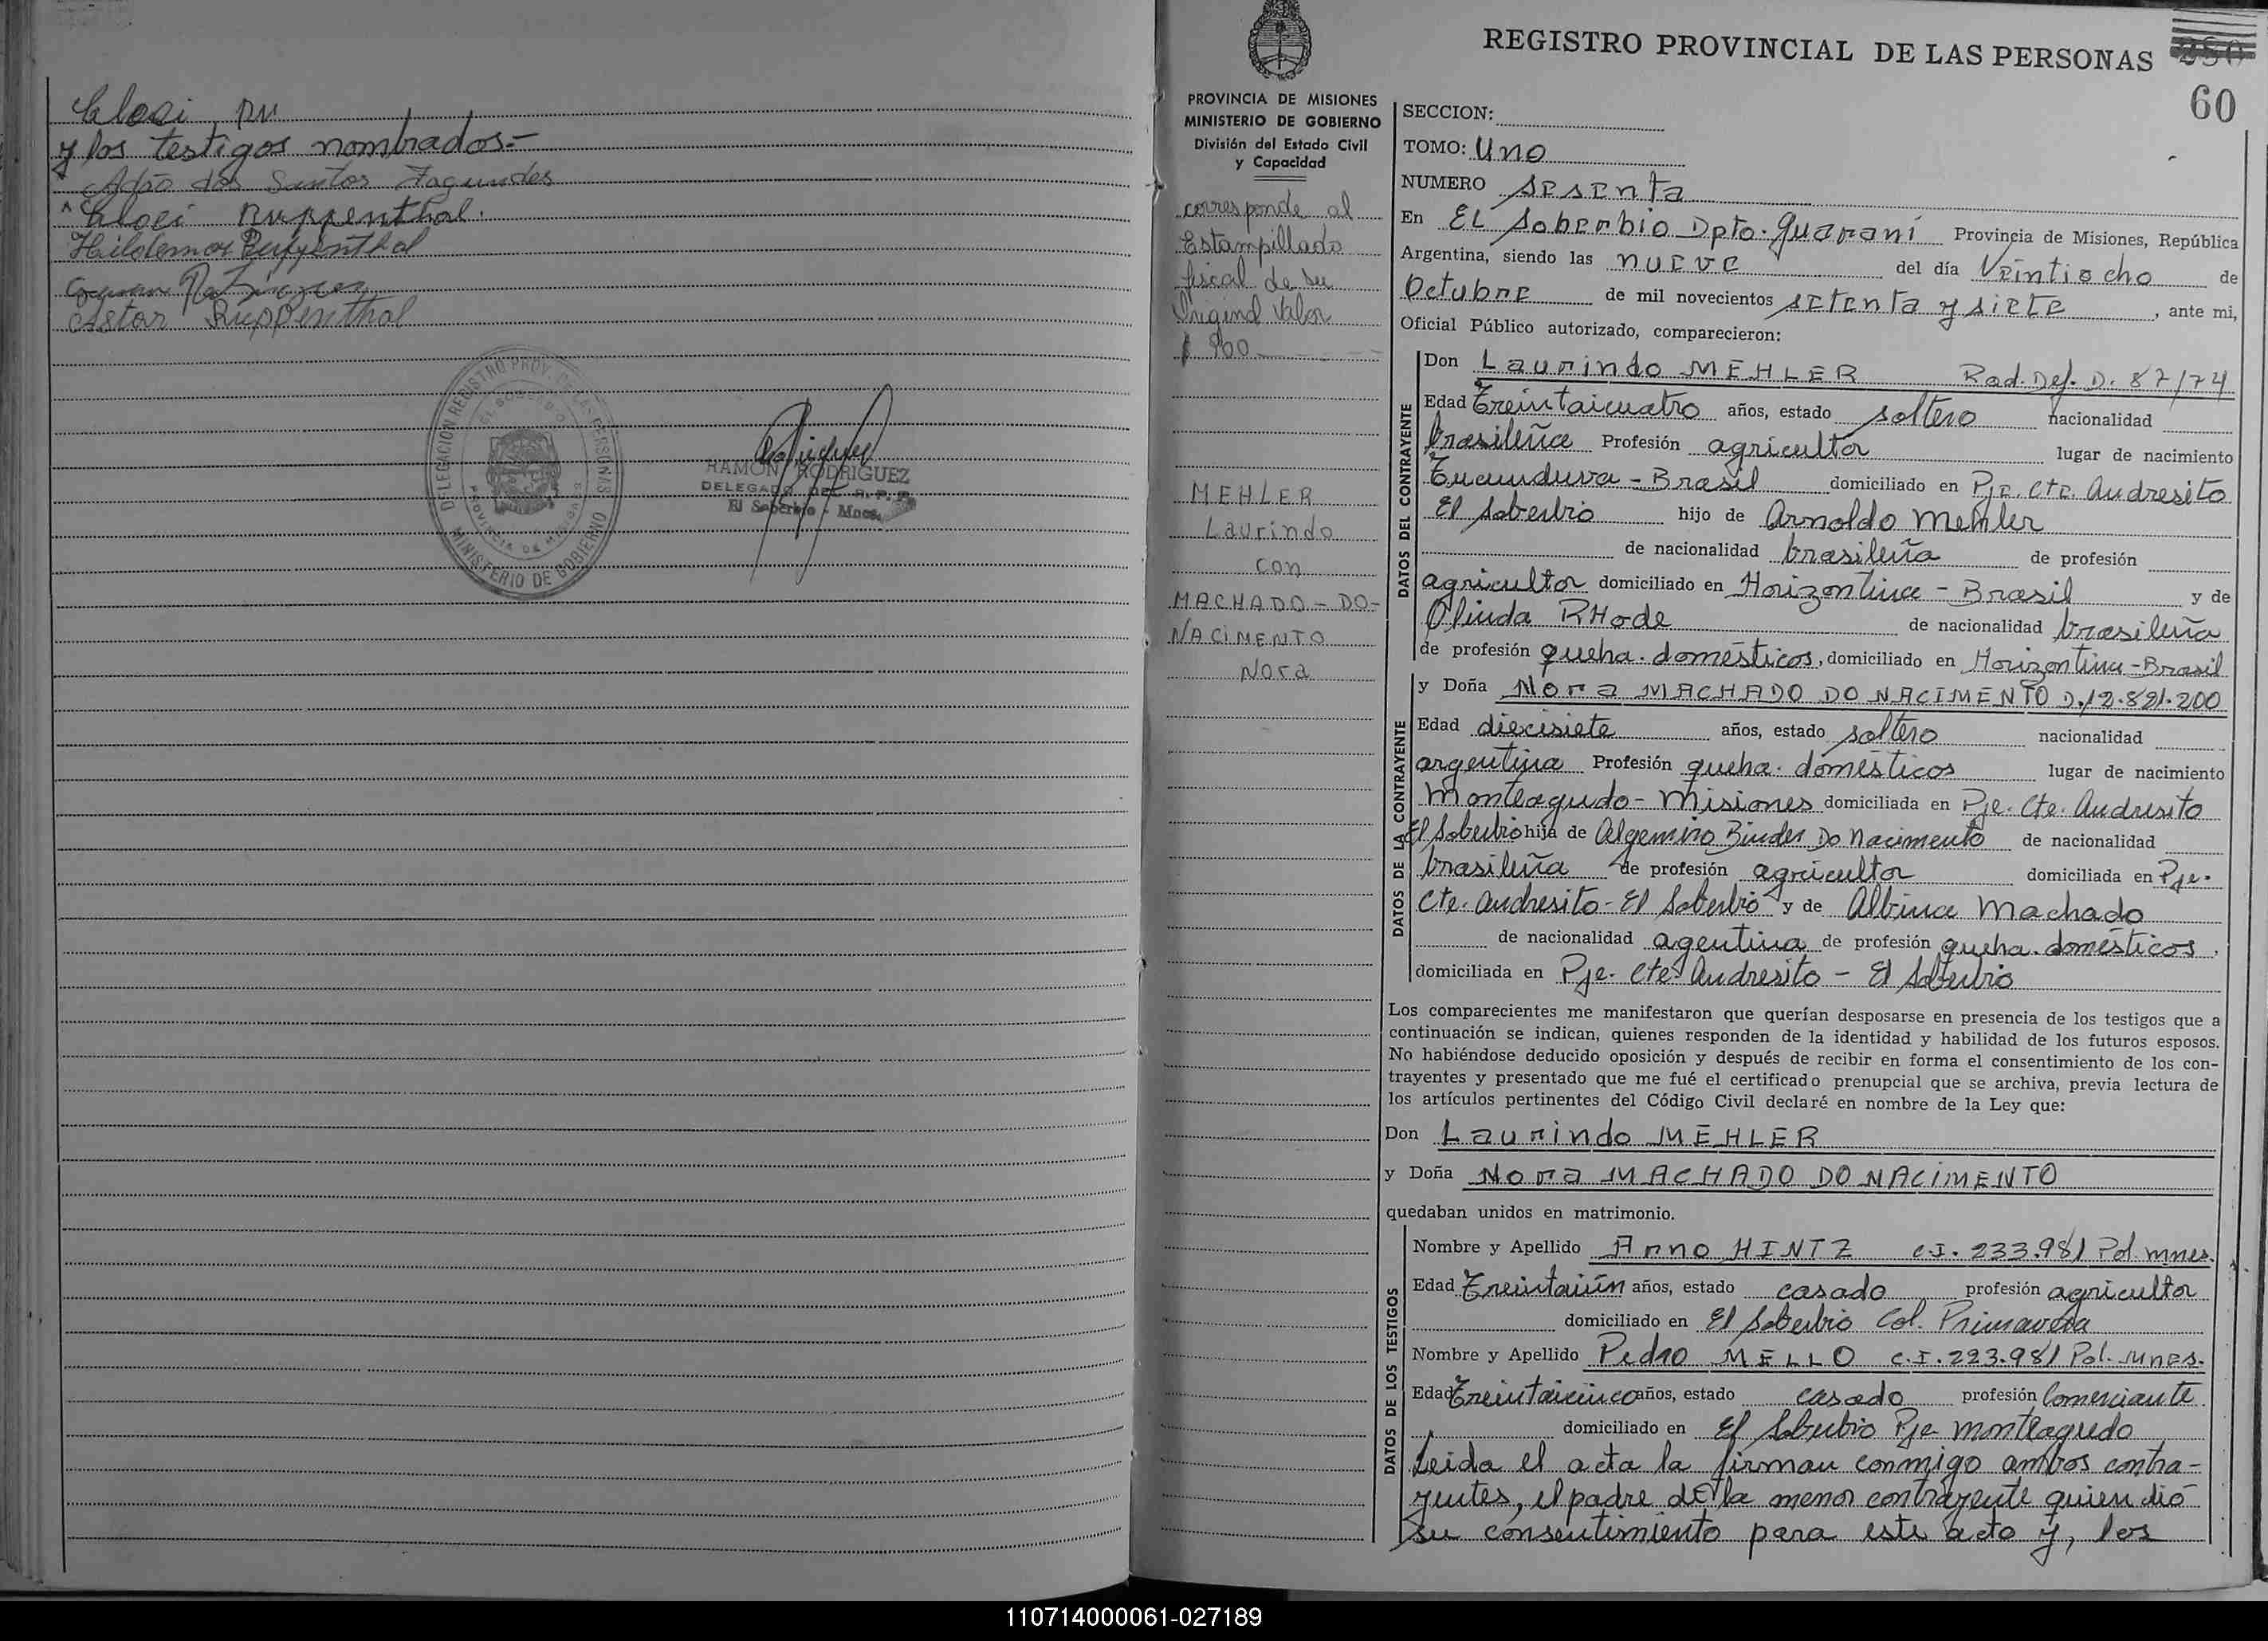 Cloei Ru
y los testigos nombrados.-
Adão dos Santos Fagundes
Cloei Ruppenthal.
Hildemar Ruppenthal
Astor Ruppenthal
DELEGACION REGISTRO PROV. DE LAS PERSONAS
EL SOBERBIO
PROVINCIA DE MISIONES
MINISTERIO DE GOBIERNO
RAMON RODRIGUEZ
DELEGADO DEL R. P. P.
El Soberbio - Mnes.
REGISTRO PROVINCIAL DE LAS PERSONAS 280
60
PROVINCIA DE MISIONES
MINISTERIO DE GOBIERNO
División del Estado Civil
y Capacidad
corresponde al
Estampillado
fiscal de su
Origind Valor
$ 900
MEHLER
Laurindo
con
MACHADO - DO-
NACIMENTO
Nora
SECCION:
TOMO: Uno
NUMERO sesenta
En EL Soberbio Dpto. Guaraní Provincia de Misiones, República
Argentina, siendo las nueve del día Veintiocho de
Octubre de mil novecientos setenta y siete, ante mi,
Oficial Público autorizado, comparecieron:
DATOS DEL CONTRAYENTE
Don Laurindo MEHLER Rad. Def. D. 87/74
Edad Treintaicuatro años, estado soltero nacionalidad
brasileña Profesión agricultor lugar de nacimiento
Tucunduva - Brasil domiciliado en Pje. Cte. Andresito
El Soberbio hijo de Arnoldo Mehler
de nacionalidad brasileña de profesión
agricultor domiciliado en Horizontina - Brasil y de
Olinda RHode de nacionalidad brasileña
de profesión queha. domésticos, domiciliado en Horizontina - Brasil
DATOS DE LA CONTRAYENTE
y Doña Nora MACHADO DO NACIMENTO D. 12.821.200
Edad diecisiete años, estado soltero nacionalidad
argentina Profesión queha. domésticos lugar de nacimiento
Monteagudo - Misiones domiciliada en Pje. Cte. Andresito
El Soberbio hija de Algemiro Binder Do Nacimento de nacionalidad
brasileña de profesión agricultor domiciliada en Pje.
Cte. Andresito - El Soberbio y de Albina Machado
de nacionalidad agentina de profesión queha. domésticos,
domiciliada en Pje. Cte. Andresito - El Soberbio
Los comparecientes me manifestaron que querían desposarse en presencia de los testigos que a
continuación se indican, quienes responden de la identidad y habilidad de los futuros esposos.
No habiéndose deducido oposición y después de recibir en forma el consentimiento de los con-
trayentes y presentado que me fué el certificado prenupcial que se archiva, previa lectura de
los artículos pertinentes del Código Civil declaré en nombre de la Ley que:
Don Laurindo MEHLER
y Doña Nora MACHADO DO NACIMENTO
quedaban unidos en matrimonio.
DATOS DE LOS TESTIGOS
Nombre y Apellido Arno HINTZ C.I. 233.981 Pol. mnes.
Edad Treintaiún años, estado casado profesión agricultor
domiciliado en El Soberbio Col. Primavera
Nombre y Apellido Pedro MELLO C.I. 223.981 Pol. Mnes.
Edad Treintaicinco años, estado casado profesión Comerciante
domiciliado en El Soberbio Pje Monteagudo
Leida el acta la firman conmigo ambos contra-
yentes, el padre de la menor contrayente quien dió
su consentimiento para este acto y, los
110714000061-027189